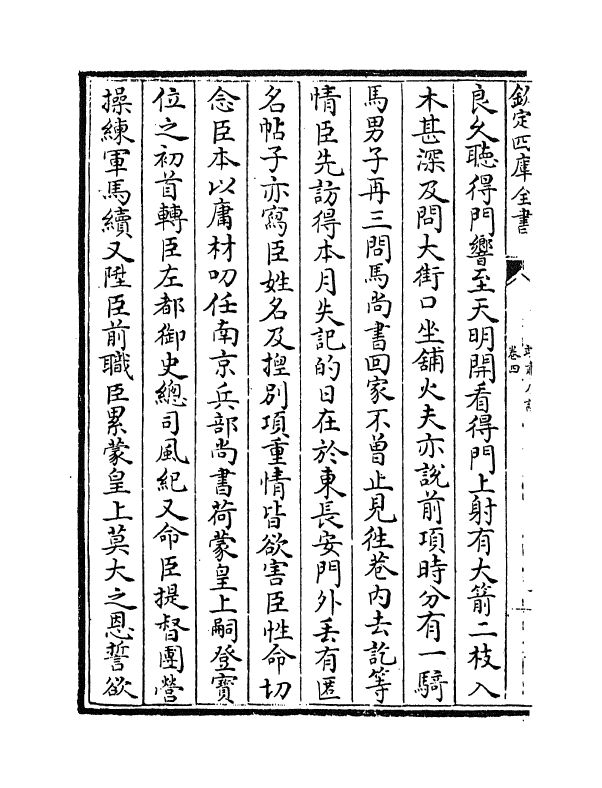 欽定四庫全書
卷四
良久聽得門響至天明開看得門上射有大箭二枝入
木甚深及問大街口坐舖火夫亦説前項時分有一騎
馬男子再三問馬尚書回家不曾止見徃巷内去訖等
情臣先訪得本月失記的日在於東長安門外丢有匿
名帖子亦寫臣姓名及揑别項重情皆欲害臣性命切
念臣本以庸材叨任南京兵部尚書荷蒙皇上嗣登寳
位之初首轉臣左都御史總司風紀又命臣提督團營
操練軍馬續又陞臣前職臣累蒙皇上莫大之恩誓欲